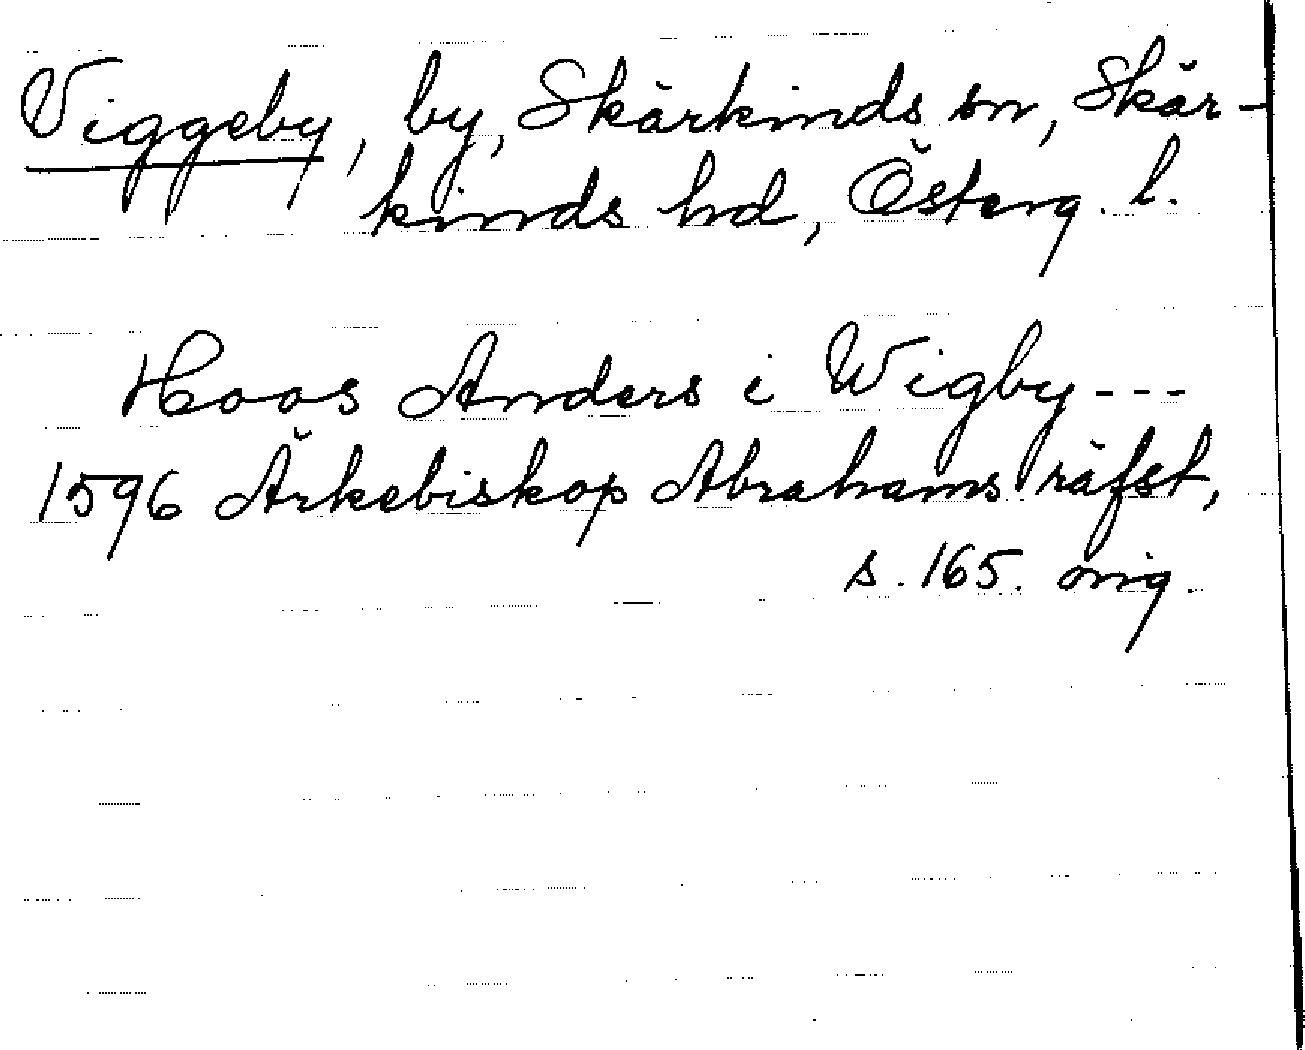 Viggeby, by, Skärkinds sn, Skär-
kinds hd, Österg. l.
Hoos Anders i Wigby ---
1596 Ärkebiskop Abrahams räfst,
s. 165. orig.